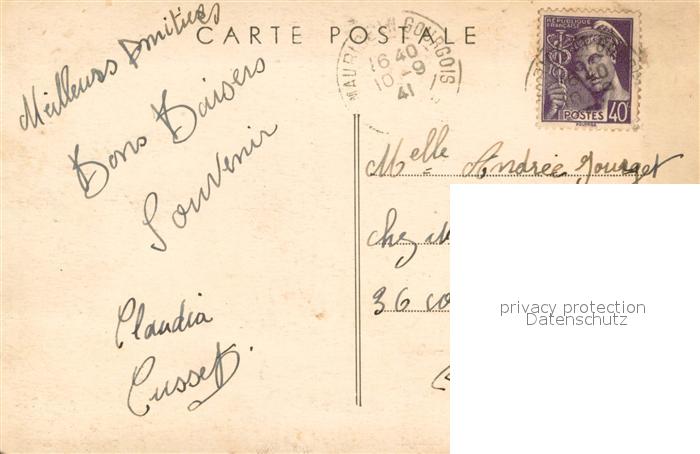 CARTE POSTALE
Meilleurs Amitiés
Bons Baisers
Souvenir
Claudia
Cusset.
GOURGOIS
16 40
10 - 9
41
REPUBLIQUE
FRANÇAISE
POSTES 40
Melle Andrée
chez
36
privacy protection
Datenschutz